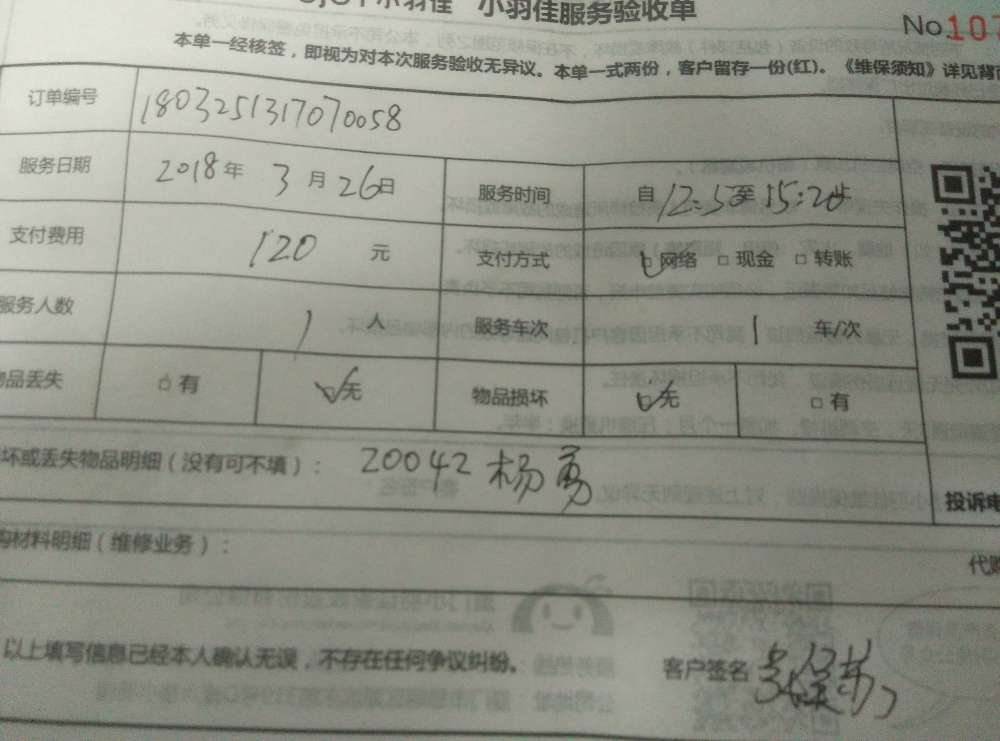 小羽佳 小羽佳服务验收单
No.10
本单一经核签，即视为对本次服务验收无异议。本单一式两份，客户留存一份(红)。《维保须知》详见背
订单编号 1803251317070058
服务日期 2018年 3月26日 服务时间 自12:50至15:20止
支付费用 120 元 支付方式 网络 现金 转账
服务人数 1 人 服务车次 1 车/次
物品丢失 有 无 物品损坏 无 有
坏或丢失物品明细（没有可不填）： 20042 杨勇
投诉电
购材料明细（维修业务）：
代购
以上填写信息已经本人确认无误，不存在任何争议纠纷。 客户签名